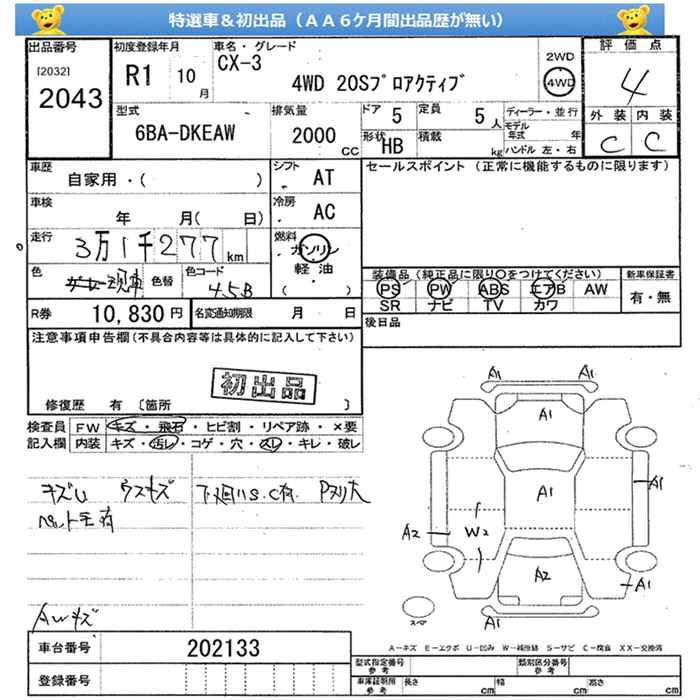 特選車＆初出品（ＡＡ６ケ月間出品歴が無い）
出品番号 初度登録年月 車名・グレード 評価点
[2032] R1 10月 CX-3 2WD
2043 4WD 20Sプロアクティブ 4WD 4
型式 排気量 ドア 定員 ディーラー・並行 外装 内装
6BA-DKEAW 2000cc 5 5人 モデル年式 年 C C
形状 HB 積載 kg ハンドル 左・右
車歴 自家用・( ) シフト AT セールスポイント（正常に機能するものに限ります）
車検 年 月( 日) 冷房 AC
走行 3万1千277km 燃料 ガソリン
軽油
色 色替 色コード 45B ( )
装備品（純正品に限り○をつけてください） 新車保証書
PS PW ABS エアB AW 有・無
SR ナビ TV カワ
R券 10,830円 名変通知期限 月 日 後日品
注意事項申告欄(不具合内容等は具体的に記入して下さい)
初出品
修復歴 有 〔箇所 〕
検査員 FW キズ・飛石・ヒビ割・リペア跡・×要
記入欄 内装 キズ・汚レ・コゲ・穴・スレ・キレ・破レ
キズU ウスキズ 下廻りS.C有
ペット毛有
AWキズ
A1 A1
A1
A1 A1
A2 W2
A2 A1
A1
スペア
A－キズ E－エクボ U－凹み W－補修跡 S－サビ C－腐食 XX－交換済
車台番号 202133
登録番号
型式指定番号 参考 類別区分番号 参考
車庫証明用 参考 長さ cm 幅 cm 高さ cm